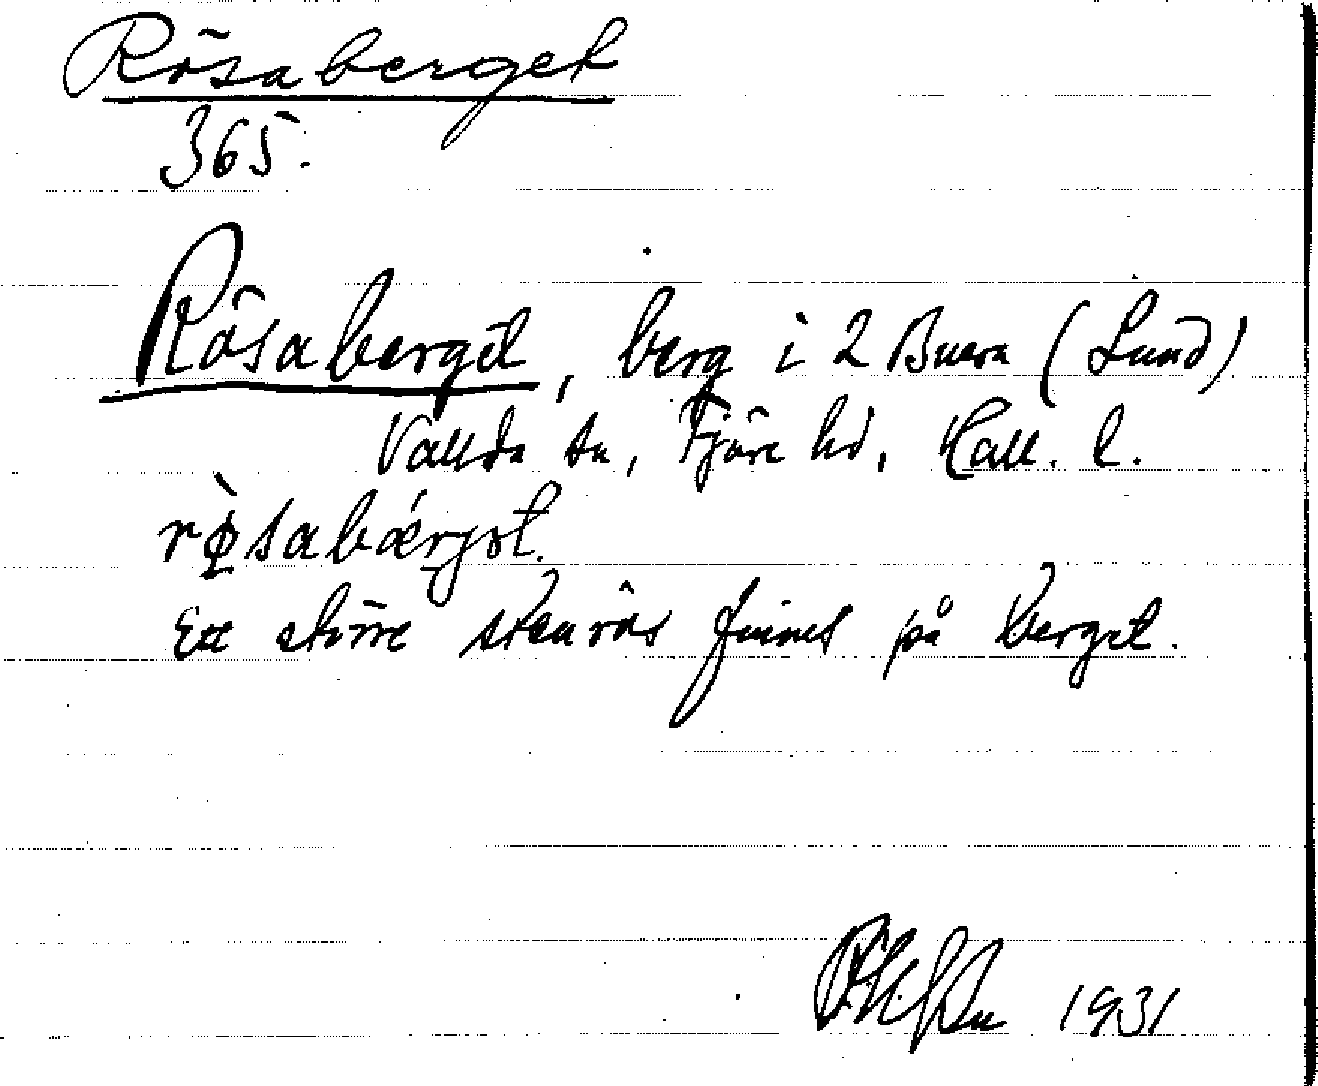 Rösaberget
365.
Rösaberget, berg i 2 Buera (Lund)
Vallda sn, Fjäre hd, Hall. l.
rø̀sabǽrjət.
Ett större stenrös finnes på berget.
1931